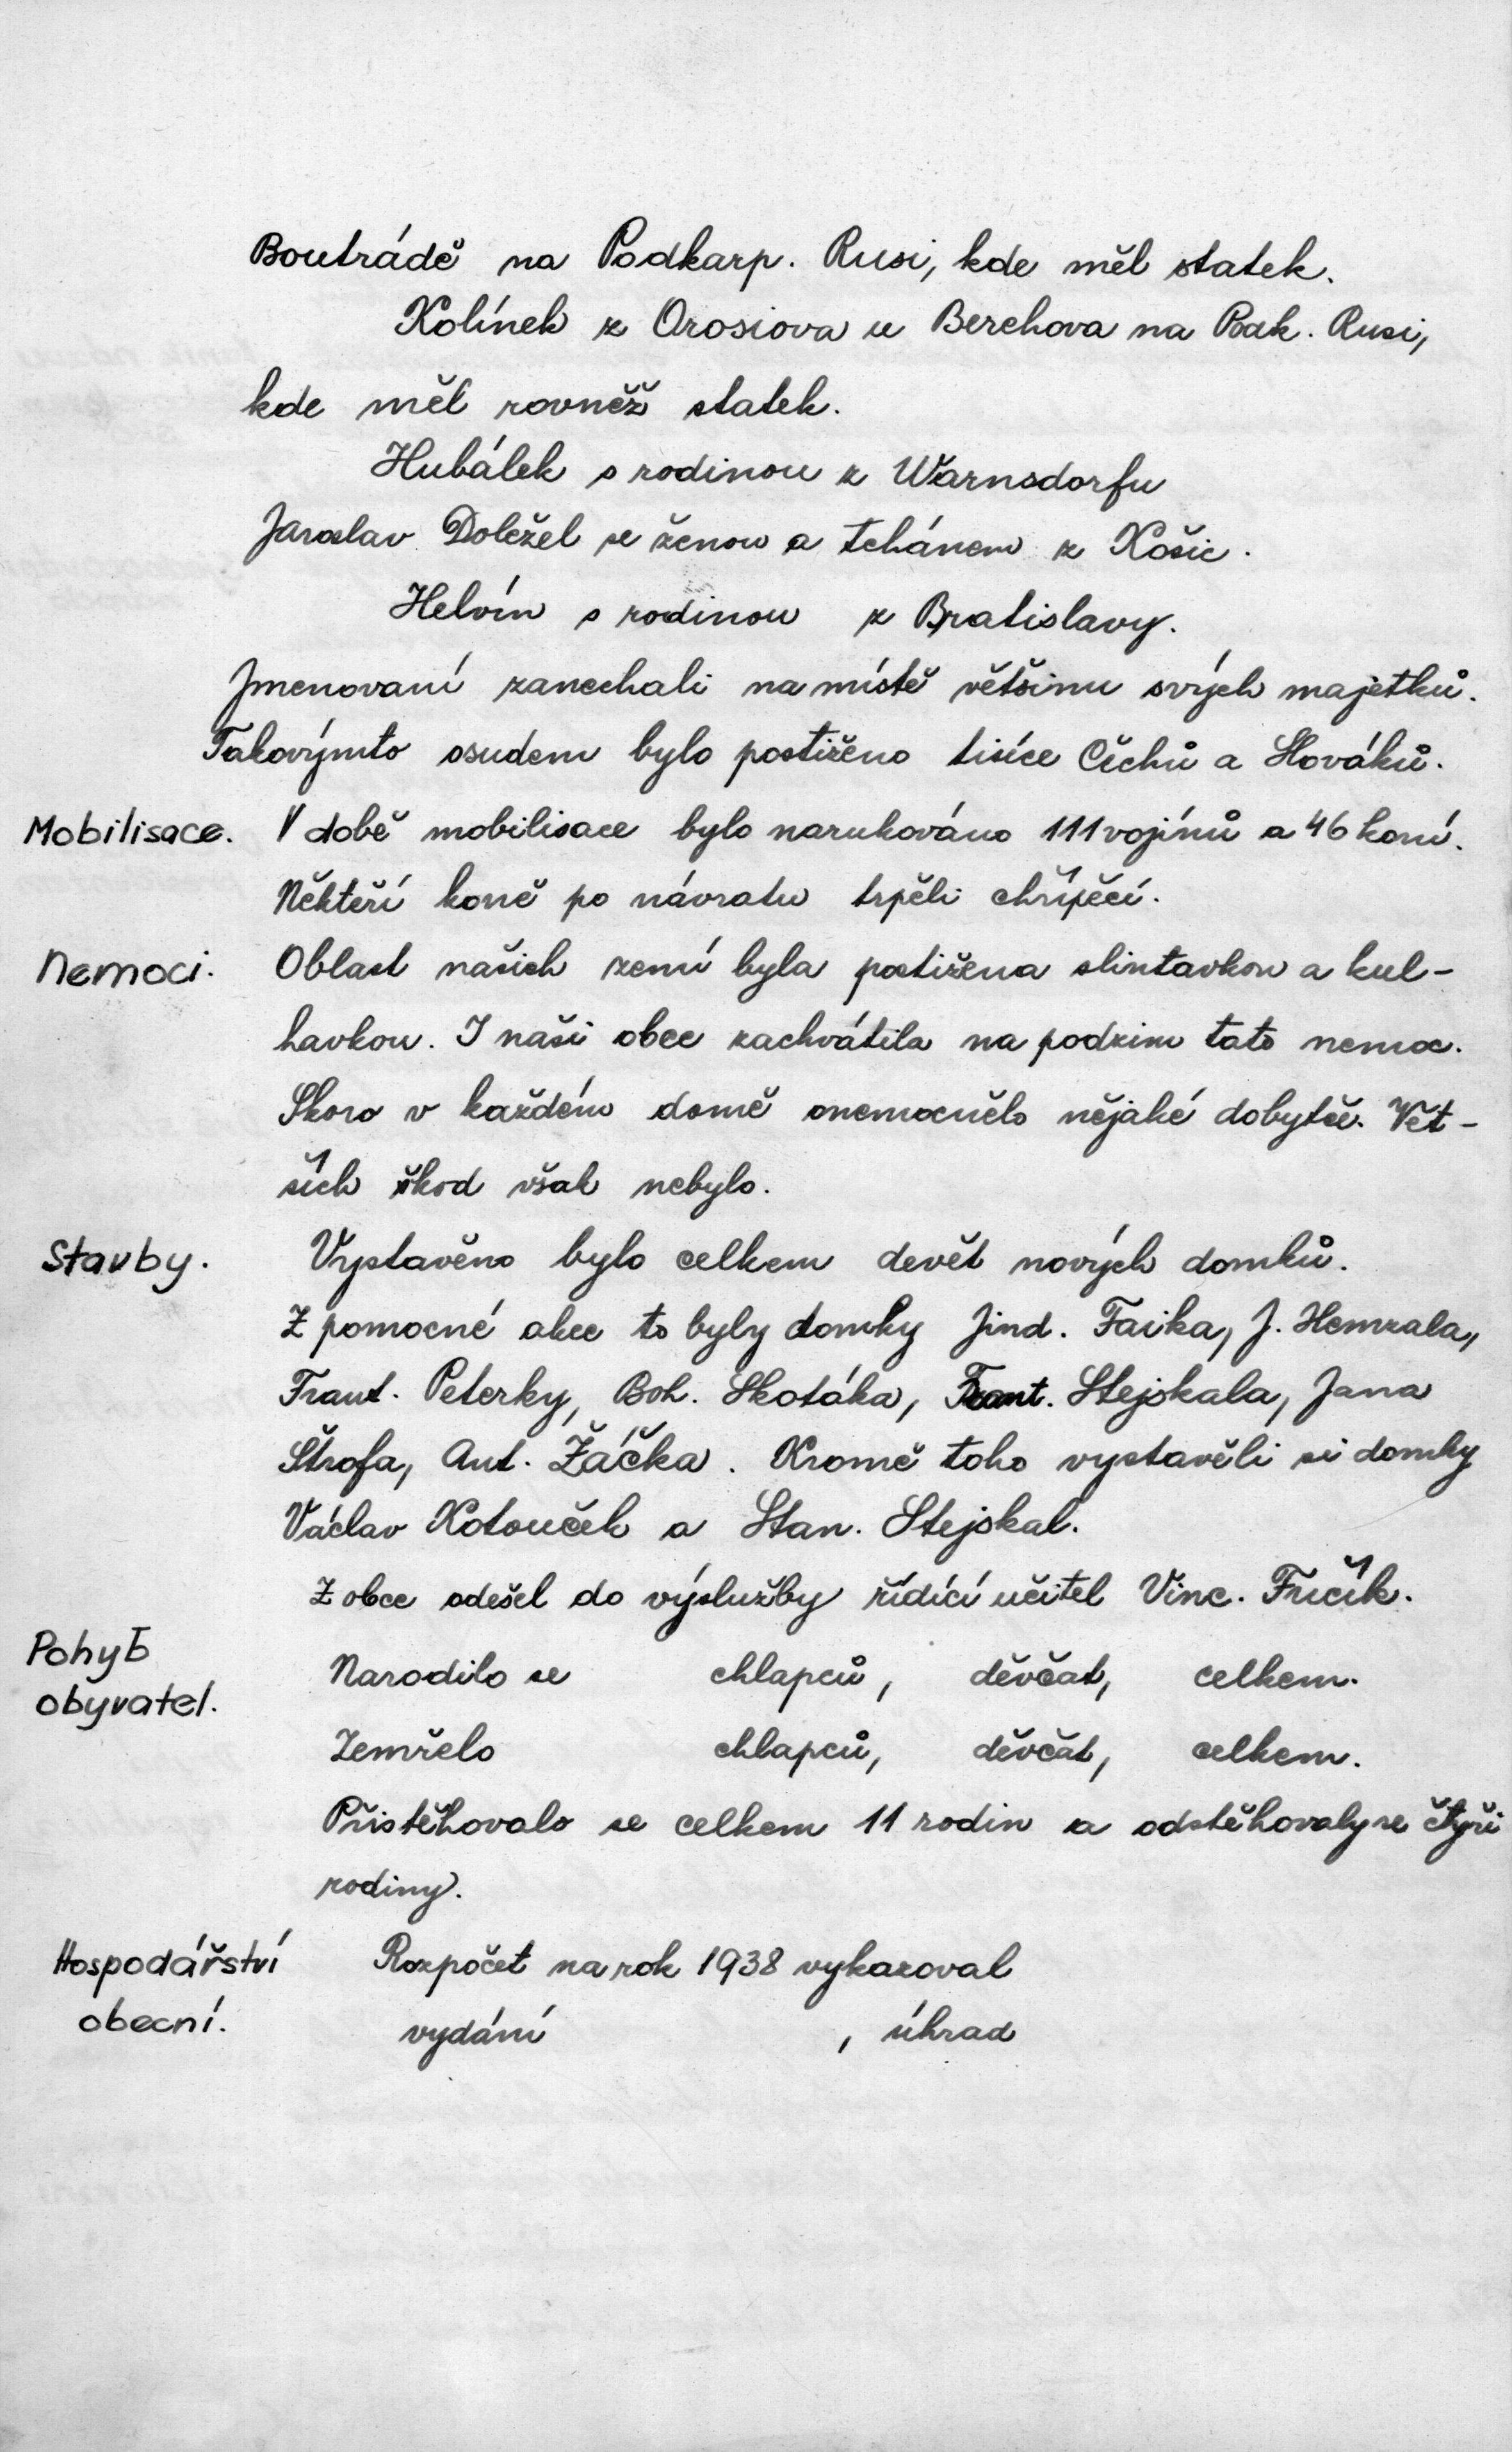 Boutrádě na Podkarp. Rusi, kde měl statek.
Kolínek z Orosiova u Berehova na Podk. Rusi,
kde měl rovněž statek.
Hubálek s rodinou z Warnsdorfu
Jaroslav Doležel se ženou a tchánem z Košic.
Helvín s rodinou z Bratislavy.
Jmenovaní zanechali na místě většinu svých majetků.
Takovýmto osudem bylo postiženo tisíce Čechů a Slováků.
Mobilisace. V době mobilisace bylo narukováno 111 vojínů a 46 koní.
Někteří koně po návratu trpěli chřipěčí.
Nemoci. Oblast našich zemí byla postižena slintavkou a kul-
havkou. I naši obec zachvátila na podzim tato nemoc.
Skoro v každém domě onemocnělo nějaké dobytče. Vět-
ších škod však nebylo.
Stavby. Vystavěno bylo celkem devět nových domků.
Z pomocné akce to byly domky Jind. Faika, J. Hemzala,
Frant. Peterky, Boh. Skotáka, Frant. Stejskala, Jana
Štrofa, Ant. Žáčka. Kromě toho vystavěli si domky
Václav Kotouček a Stan. Stejskal.
Z obce odešel do výslužby řídící učitel Vinc. Fučík.
Pohyb
obyvatel.
Narodilo se chlapců, děvčat, celkem.
Zemřelo chlapců, děvčat, celkem.
Přistěhovalo se celkem 11 rodin a odstěhovaly se čtyři
rodiny.
Hospodářství
obecní.
Rozpočet na rok 1938 vykazoval
vydání , úhrad